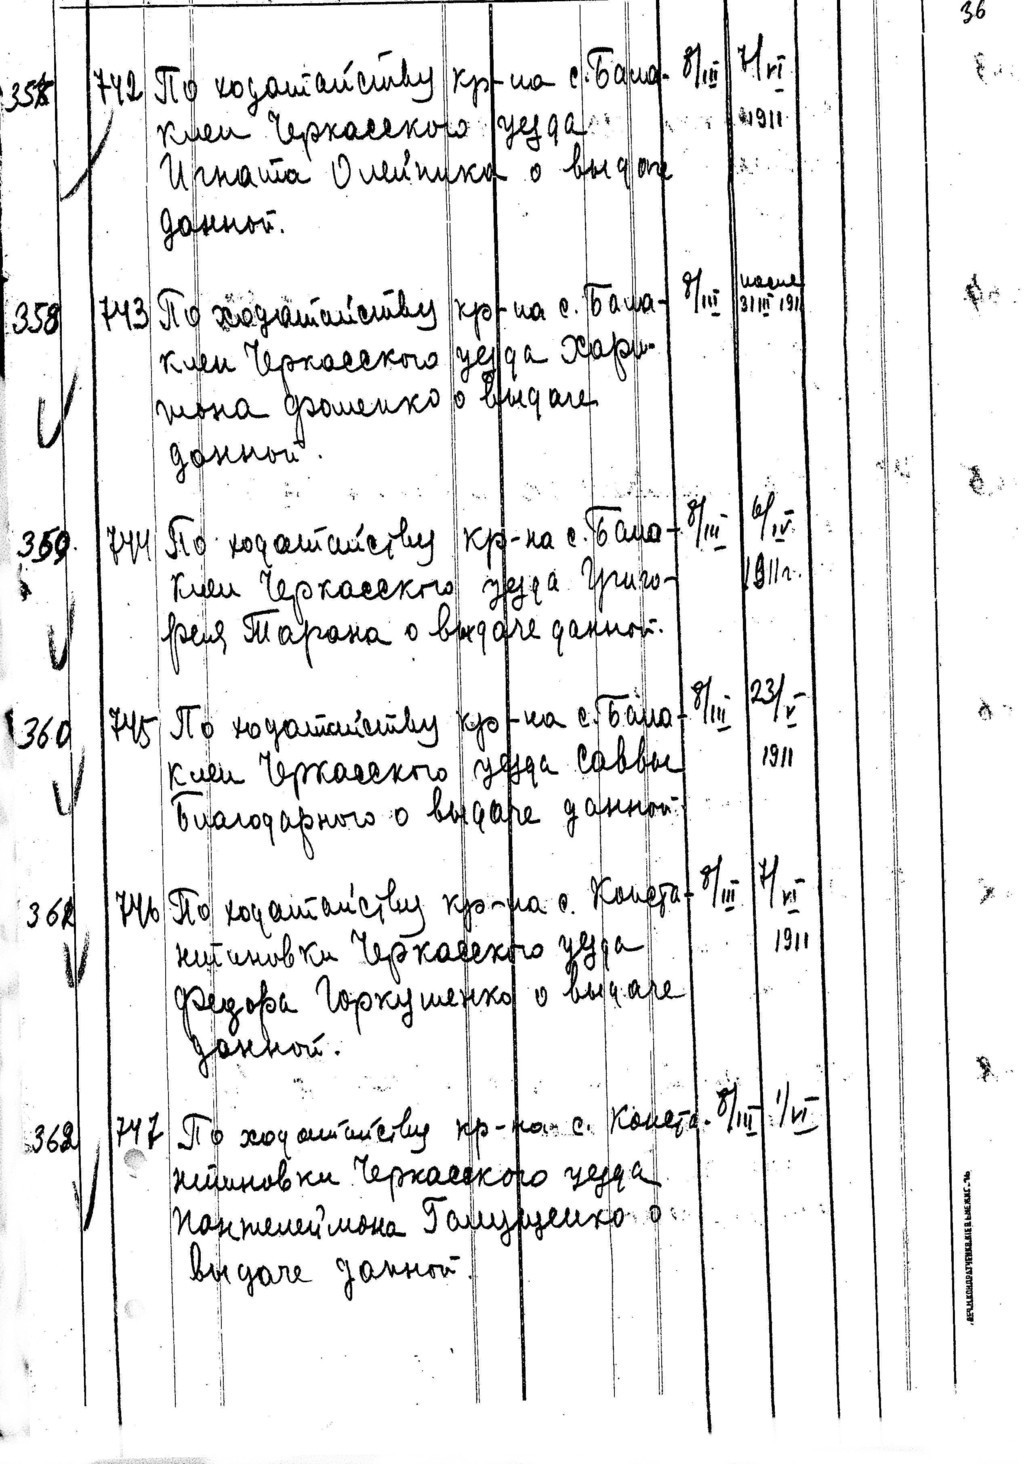 36
357 742 По ходатайству кр-на с. Бала- 8/III 7/VI
клеи Черкасского уезда 1911
Игната Олейника о выдаче
данной.
358 743 По ходатайству кр-на с. Бала- 8/III после
31 III 1911
клеи Черкасского уезда Хари-
тона Фоменко о выдаче
данной.
359. 744 По ходатайству кр-на с. Бала- 8/III 6/IV
клеи Черкасского уезда Григо- 1911 г.
рия Тарана о выдаче данной.
360 745 По ходатайству кр-на с. Бала- 8/III 23/V
клеи Черкасского уезда Саввы 1911
Благодарного о выдаче данной
361 746 По ходатайству кр-на с. Конста- 8/III 7/VI
нтиновки Черкасского уезда 1911
Федора Горкушенко о выдаче
данной.
362 747 По ходатайству кр-на с. Конста- 8/III 1/VI
нтиновки Черкасского уезда
Пантелеймона Галущенко о
выдаче данной.